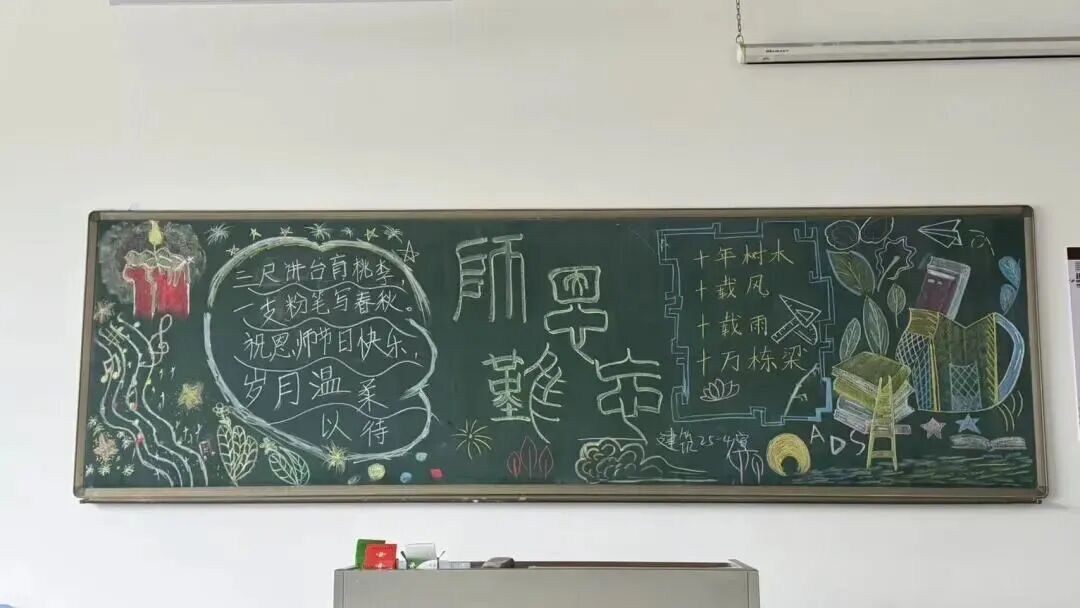 三尺讲台育桃李,
一支粉笔写春秋。
祝恩师节日快乐,
岁月温柔
以待
師恩
難忘
十年树木
十载风
十载雨
十万栋梁
建筑25-4宣
ADS